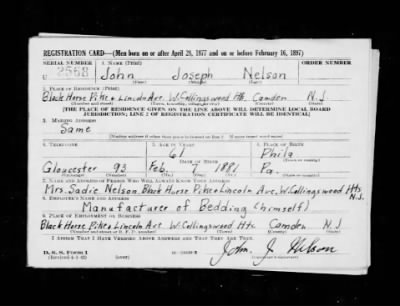 REGISTRATION CARD—(Men born on or after April 28, 1877 and on or before February 16, 1897)
SERIAL NUMBER 1. NAME (Print) ORDER NUMBER
U 2568 John Joseph Nelson
(First) (Middle) (Last)
2. PLACE OF RESIDENCE (Print)
Black Horse Pike & Lincoln Ave. W. Collingswood Hts. Camden N.J.
(Number and street) (Town, township, village, or city) (County) (State)
[THE PLACE OF RESIDENCE GIVEN ON THE LINE ABOVE WILL DETERMINE LOCAL BOARD
JURISDICTION; LINE 2 OF REGISTRATION CERTIFICATE WILL BE IDENTICAL]
3. MAILING ADDRESS
Same
[Mailing address if other than place indicated on line 2. If same insert word same]
4. TELEPHONE 5. AGE IN YEARS 6. PLACE OF BIRTH
61 Phila
DATE OF BIRTH
Gloucester 93 Feb. 1881 Pa.
7. NAME AND ADDRESS OF PERSON WHO WILL ALWAYS KNOW YOUR ADDRESS
Mrs. Sadie Nelson Black Horse Pike & Lincoln Ave, W. Collingswood Hts N.J.
8. EMPLOYER'S NAME AND ADDRESS
Manufacturer of Bedding (himself)
9. PLACE OF EMPLOYMENT OR BUSINESS
Black Horse Pike & Lincoln Ave W. Collingswood Hts. Camden N.J.
(Number and street or R. F. D. number) (Town) (County) (State)
I AFFIRM THAT I HAVE VERIFIED ABOVE ANSWERS AND THAT THEY ARE TRUE.
D. S. S. Form 1
(Revised 4-1-42) John J. Nelson